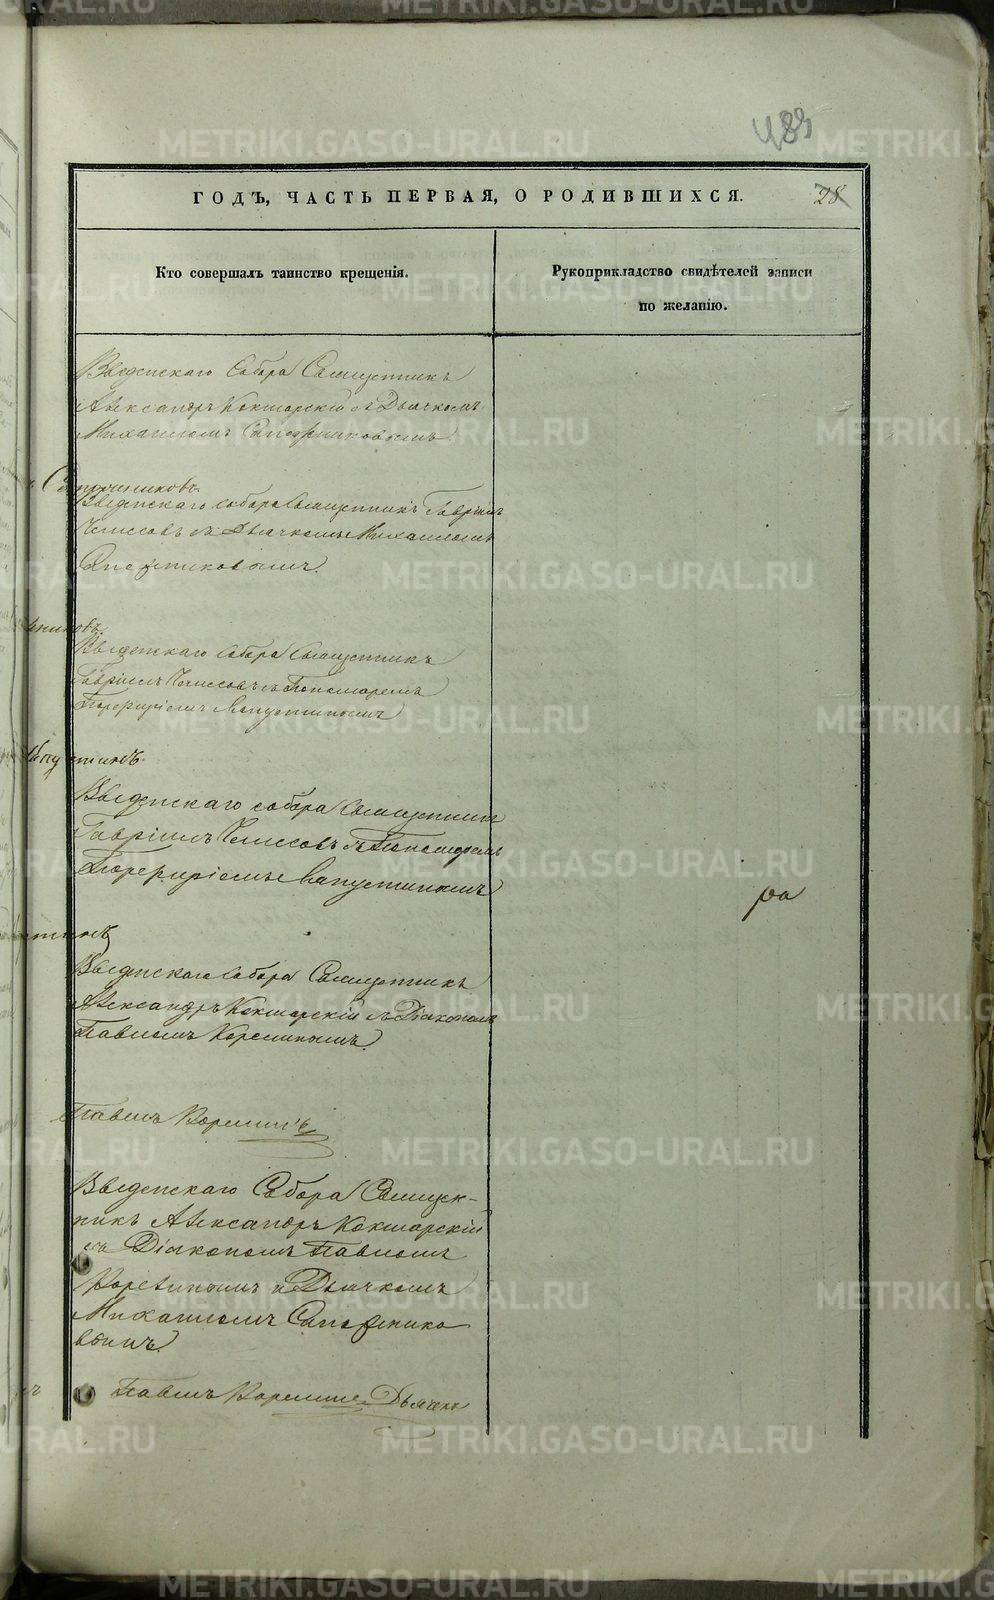 483
ГОДЪ, ЧАСТЬ ПЕРВАЯ, О РОДИВШИХСЯ.
28
Кто совершалъ таинство крещенія.
Рукоприкладство свидѣтелей записи
по желанію.
Введенскаго Собора Священникъ
Александръ Кокшарскій съ Дьячкомъ
Михаиломъ Сапожниковымъ.
Сапожниковъ.
Введенскаго собора Священникъ Гавріилъ
съ Дьячкомъ Михаиломъ
Сапожниковымъ.
Введенскаго Собора Священникъ
Гавріилъ съ Пономаремъ
Порфиріемъ Капустинымъ
Капустинъ.
Введенскаго собора Священникъ
Гавріилъ съ Пономаремъ
Порфиріемъ Капустинымъ
ра
Введенскаго Собора Священникъ
Александръ Кокшарскій съ Діакономъ
Павломъ Корелинымъ.
Павелъ Корелинъ
Введенскаго Собора Священ-
никъ Александръ Кокшарскій
съ Діакономъ Павломъ
Корелинымъ и Дьячкомъ
Михаиломъ Сапожнико
вымъ.
Павелъ Корелинъ Дьячекъ
METRIKI.GASO-URAL.RU